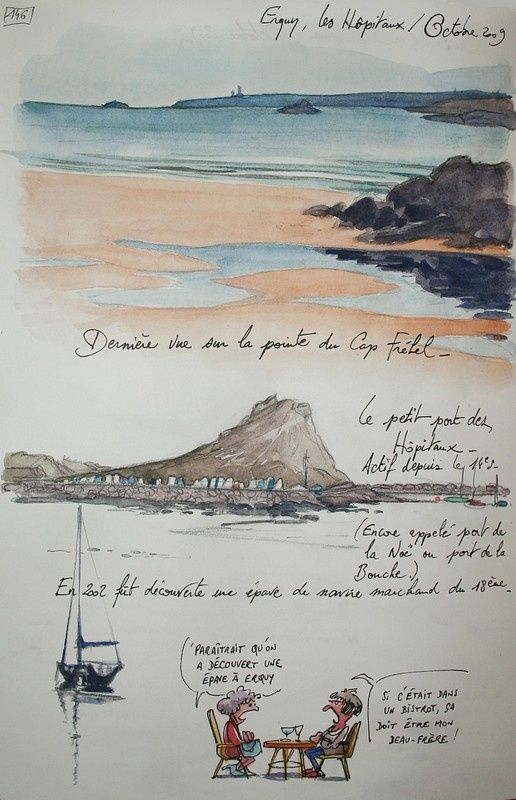 146
Erquy, les Hôpitaux / Octobre 2009
Dernière vue sur la pointe du Cap Fréhel_
Le petit port des
Hôpitaux_
Actif depuis le 14e s_
(Encore appelé port de
la Noë ou port de la
Bouche!)
En 202 fût découverte une épave de navire marchand du 18ème_
'PARAÎTRAIT QU'ON
A DÉCOUVERT UNE
ÉPAVE À ERQUY
SI C'ÉTAIT DANS
UN BISTROT, ÇA
DOIT ÊTRE MON
BEAU-FRÈRE!